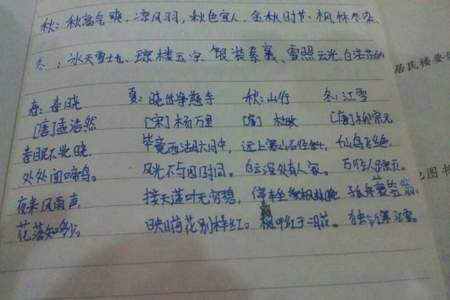 秋：秋高气爽、凉风习习、秋色宜人、金秋时节、枫林
冬：冰天雪地、琼楼玉宇、银装素裹、雪
春：春晓 夏：晓出净慈寺 秋：山行 冬：江雪
[唐]孟浩然 [宋]杨万里 [唐]杜牧 [唐]柳宗元
春眠不觉晓， 毕竟西湖六月中， 远上寒山石径斜， 千山鸟飞绝，
处处闻啼鸟。 风光不与四时同。 白云深处有人家。 万径人踪灭。
夜来风雨声， 接天莲叶无穷碧， 停车坐爱枫林晚， 孤舟蓑笠翁，
花落知多少。 映日荷花别样红。 霜叶红于二月花。 独钓寒江雪。
居民楼要
图书